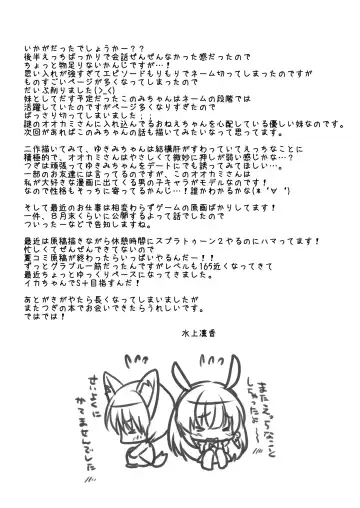 いかがだったでしょうかー？？
後半えっちばっかりで会話ぜんぜんなかった感だったので
ちょっと物足りないかんじですが…！
思い入れが強すぎてエピソードもりもりでネーム切ってしまったのですが
ものすごいページが多くなってしまったので
だいぶ削りました(>_<)
妹としてだす予定だったこのみちゃんはネームの段階では
活躍していたのですがページが多くなったので
ばっさり切ってしまいました；；
謎のオオカミさんに入れ込んでるおねえちゃんを心配している優しい妹なのです。
次回があればこのみちゃんの話も描いてみたいなって思ってます。
二作描いてみて、ゆきみちゃんは結構肝がすわっていてえっちなことに
積極的で、オオカミさんはやさしくて微妙に押しが弱い感じかな…？
つぎは頑張ってゆきみちゃんをデートにでも誘ってみてほしい…。
一部のお友達には言ってるのですが、このオオカミさんは
私が大好きな漫画に出てくる男の子キャラがモデルなのです！
なので性格もそっちに寄ってるんだけど…！誰かわかるかな(*´∀`)
そして最近のお仕事は相変わらずゲームの原画ばかりしてます！
一件、８月末くらいに公開するよって話でしたので
ついったーなどで告知しますね！
最近は原稿描きながら休憩時間にスプラトゥーン２やるのにハマってます！
忙しくてぜんぜんできてないので
夏コミ原稿が終わったらいっぱいやるんだー！！
ずっとグラブル一筋だったんですがレベルも165近くなってきて
最近ちょっとゆっくりペースになってきました。
イカちゃんでS+目指すんだ！
あとがきがやたら長くなってしまいましたが
またつぎの本でお会いできたらうれしいです。
ではでは！
水上凛香
またえっちなこと
しちゃったよ～～
せいよくに
かてませんでした